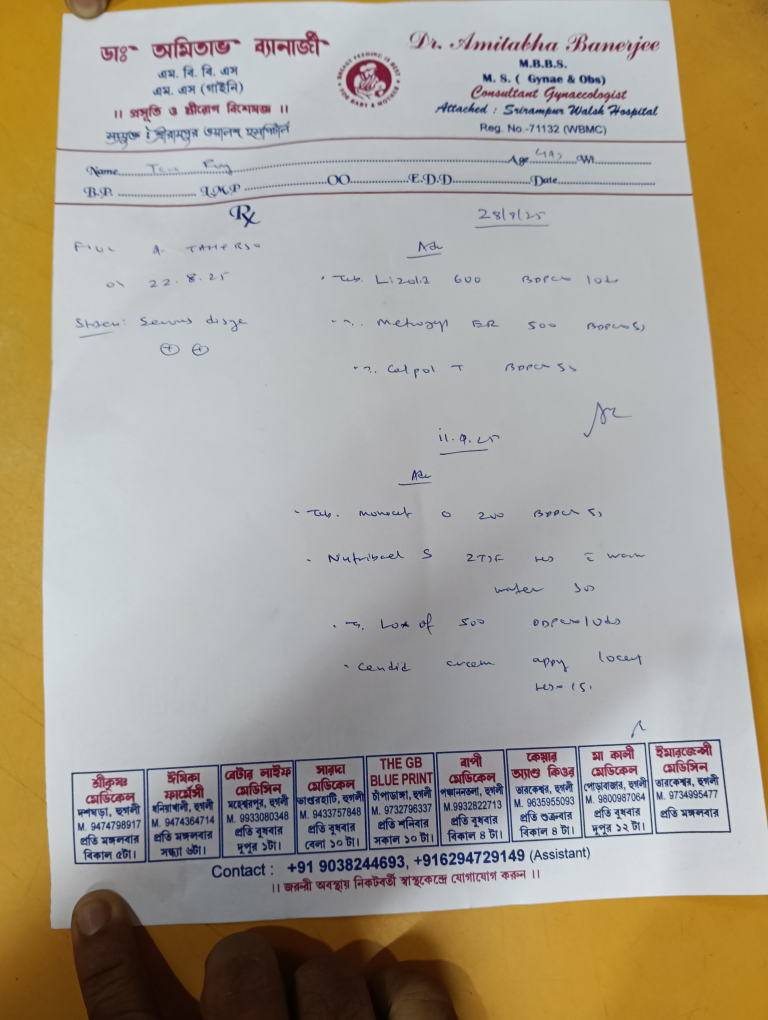 ডাঃ অমিতাভ ব্যানার্জী
এম. বি. বি. এস
এম. এস (গাইনি)
।। প্রসূতি ও স্ত্রীরোগ বিশেষজ্ঞ ।।
সংযুক্ত : শ্রীরামপুর ওয়ালশ হসপিটাল
BREAST FEEDING IS BEST
FOR BABY & MOTHER
Dr. Amitabha Banerjee
M.B.B.S.
M. S. ( Gynae & Obs)
Consultant Gynaecologist
Attached : Srirampur Walsh Hospital
Reg. No.-71132 (WBMC)
Name Age Wt.
B.P. L.M.P OO E.D.D Date
Rx
on 22.8.25
Serous
+ +
28/8/25
Adv
Tab. Lizolid 600
Metrogyl ER 500
Calpol T
11.9.25
Adv
Tab. Monocef O 200
Nutribael S 2TSF warm
water
T. Lox of 500
Candid cream apply locally
শ্রীকৃষ্ণ মেডিকেল
দশঘড়া, হুগলী
M. 9474798917
প্রতি মঙ্গলবার
বিকাল ৫টা।
ঈষিকা ফার্মেসী
ধনিয়াখালী, হুগলী
M. 9474364714
প্রতি মঙ্গলবার
সন্ধ্যা ৬টা।
বেটার লাইফ মেডিসিন
মহেশ্বরপুর, হুগলী
M. 9933080348
প্রতি বুধবার
দুপুর ১টা।
সারদা মেডিকেল
ভাণ্ডারহাটি, হুগলী
M. 9433757848
প্রতি বুধবার
বেলা ১০ টা।
THE GB BLUE PRINT
চাঁপাডাঙ্গা, হুগলী
M. 9732796337
প্রতি শনিবার
সকাল ১০ টা।
বাপী মেডিকেল
পঞ্চাননতলা, হুগলী
M.9932822713
প্রতি বুধবার
বিকাল ৪ টা।
কেয়ার অ্যাণ্ড কিওর
তারকেশ্বর, হুগলী
M. 9635955093
প্রতি শুক্রবার
বিকাল ৪ টা।
মা কালী মেডিকেল
পোড়াবাজার, হুগলী
M. 9800987064
প্রতি বুধবার
দুপুর ১২ টা।
ইমারজেন্সী মেডিসিন
তারকেশ্বর, হুগলী
M. 9734995477
প্রতি মঙ্গলবার
Contact : +91 9038244693, +916294729149 (Assistant)
।। জরুরী অবস্থায় নিকটবর্তী স্বাস্থ্যকেন্দ্রে যোগাযোগ করুন ।।